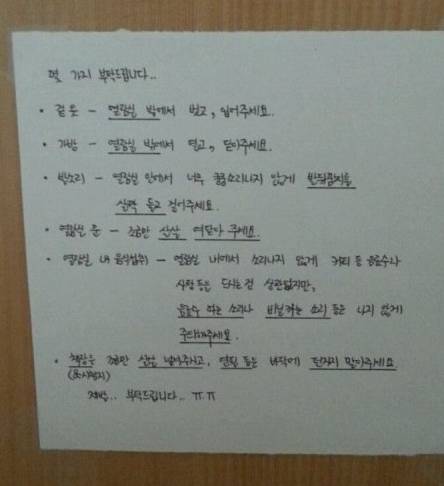 몇 가지 부탁드립니다..
• 겉옷 - 열람실 밖에서 벗고, 입어주세요.
• 가방 - 열람실 밖에서 열고, 닫아주세요.
• 발소리 - 열람실 안에서 너무 쿵쿵소리나지 않게 발뒤꿈치를
살짝 들고 걸어주세요.
• 열람실 문 - 조금만 살살 여닫아 주세요.
• 열람실 내 음식섭취 - 열람실 내에서 소리나지 않게 커피 등 음료수나
사탕 등은 드시는건 상관없지만,
음료수 마시는 소리나 비닐까는 소리 등은 나지 않게
주의해주세요.
• 책장은 조금만 살살 넘겨주시고, 연필 등은 바닥에 던지지 말아주세요
(or 시험지)
제발.. 부탁드립니다.. ㅠ.ㅠ